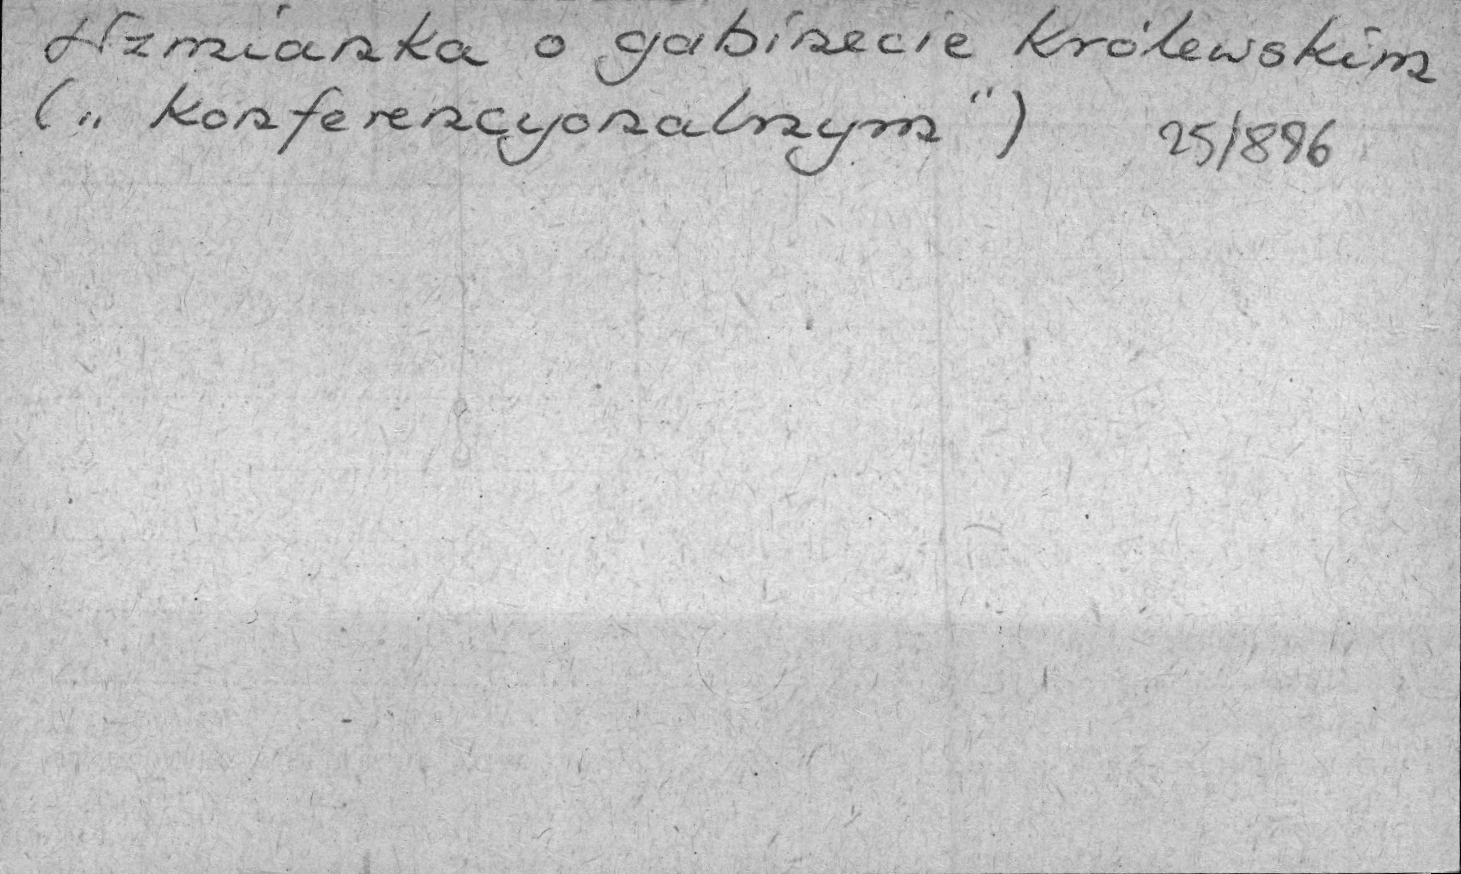 Wzmianka o gabinecie królewskim
(„konferencyonalnym“) 25/896